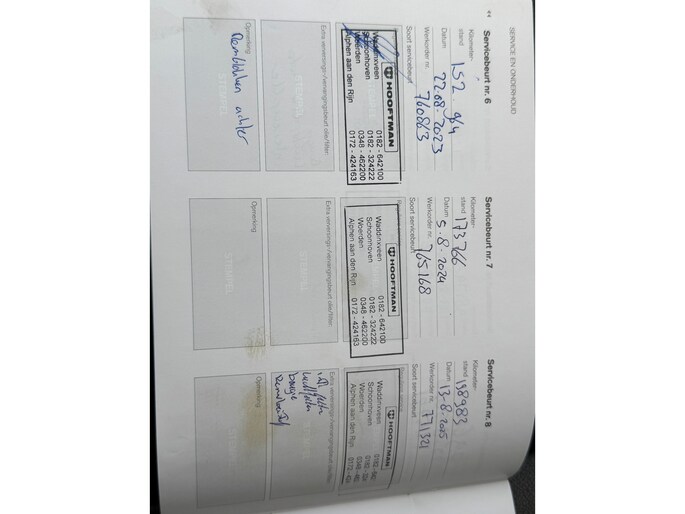 44
SERVICE EN ONDERHOUD
Servicebeurt nr. 6
Kilometer-
stand 152.964
Datum 22.08.2023
Werkorder nr. 760863
Soort servicebeurt
HOOFTMAN
Waddinxveen 0182 - 642100
Schoonhoven 0182 - 324222
Woerden 0348 - 462200
Alphen aan den Rijn 0172 - 424163
Extra verversings-/vervangingsbeurt olie/filter:
STEMPEL
Opmerking
Remblokken achter
STEMPEL
Servicebeurt nr. 7
Kilometer-
stand 173766
Datum 5.8.2024
Werkorder nr. 765168
Soort servicebeurt
HOOFTMAN
Waddinxveen 0182 - 642100
Schoonhoven 0182 - 324222
Woerden 0348 - 462200
Alphen aan den Rijn 0172 - 424163
Extra verversings-/vervangingsbeurt olie/filter:
STEMPEL
Opmerking
STEMPEL
Servicebeurt nr. 8
Kilometer-
stand 198983
Datum 13-8-2025
Werkorder nr. 771321
Soort servicebeurt
HOOFTMAN
Waddinxveen 0182 - 642
Schoonhoven 0182 - 324
Woerden 0348 - 462
Alphen aan den Rijn 0172 - 424
Extra verversings-/vervangingsbeurt olie/filter:
Luchtfilter
bougie
Remvloeistof
Opmerking